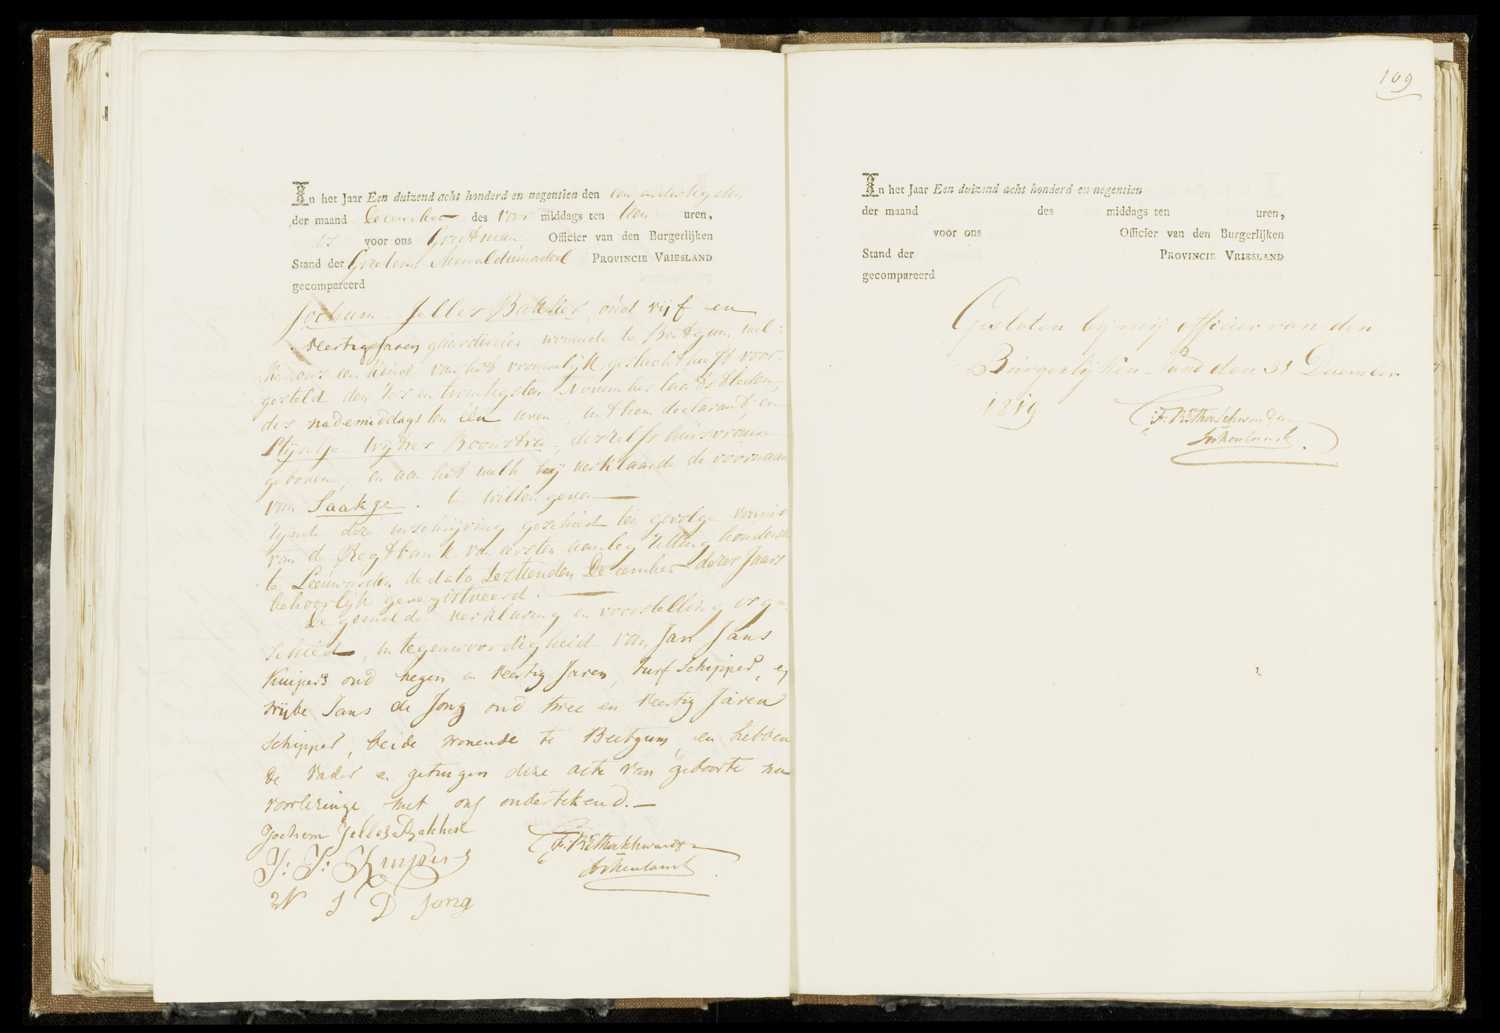 In het Jaar Een duizend acht honderd en negentien den een en dertigsten
der maand December des voor middags ten tien uren,
is voor ons Grietman Officier van den Burgerlijken
Stand der Grietenij Menaldumadeel PROVINCIE VRIESLAND
gecompareerd
Jochum Jelles Bakker, oud vijf en
veertig Jaren, gardenier wonende te Beetgum, wel-
ke ons een kind van het vrouwelijk geslacht heeft voor-
gesteld den zes en twintigsten November laatstleden
des nademiddags ten één uren, uit hem declarant, en
Wytzes Boonstra, deszelfs huisvrouw
geboren, en aan het welk hij verklaarde de voornaam
van Saakje te willen geven
zijnde deze inschrijving geschied ten gevolge vonnis
van de Regtbank van eersten aanleg zitting houdende
te Leeuwarden de dato zestienden December dezes Jaars
behoorlijk geregistreerd.
De gemelde verklaring en voorstelling is ge-
schied, in tegenwoordigheid van Jan Jans
Kuipers oud negen en veertig Jaren, turf schipper, en
Wijbe Jans de Jong oud twee en veertig Jaren
schipper, beide wonende te Beetgum, en hebben
de vader en getuigen deze acte van geboorte na
voorlezinge met ons ondertekend.
Jochem Jelles Bakker
J: J: Kuipers
W J D Jong
109
In het Jaar Een duizend acht honderd en negentien
der maand des middags ten uren,
voor ons Officier van den Burgerlijken
Stand der PROVINCIE VRIESLAND
gecompareerd
Gesloten bij mij officier van den
Burgerlijken Stand den 31 December
1819